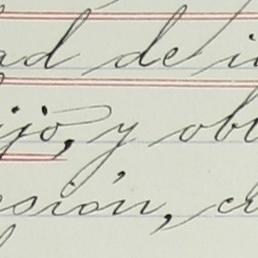 ad de i
ijo, y ob
esión, c